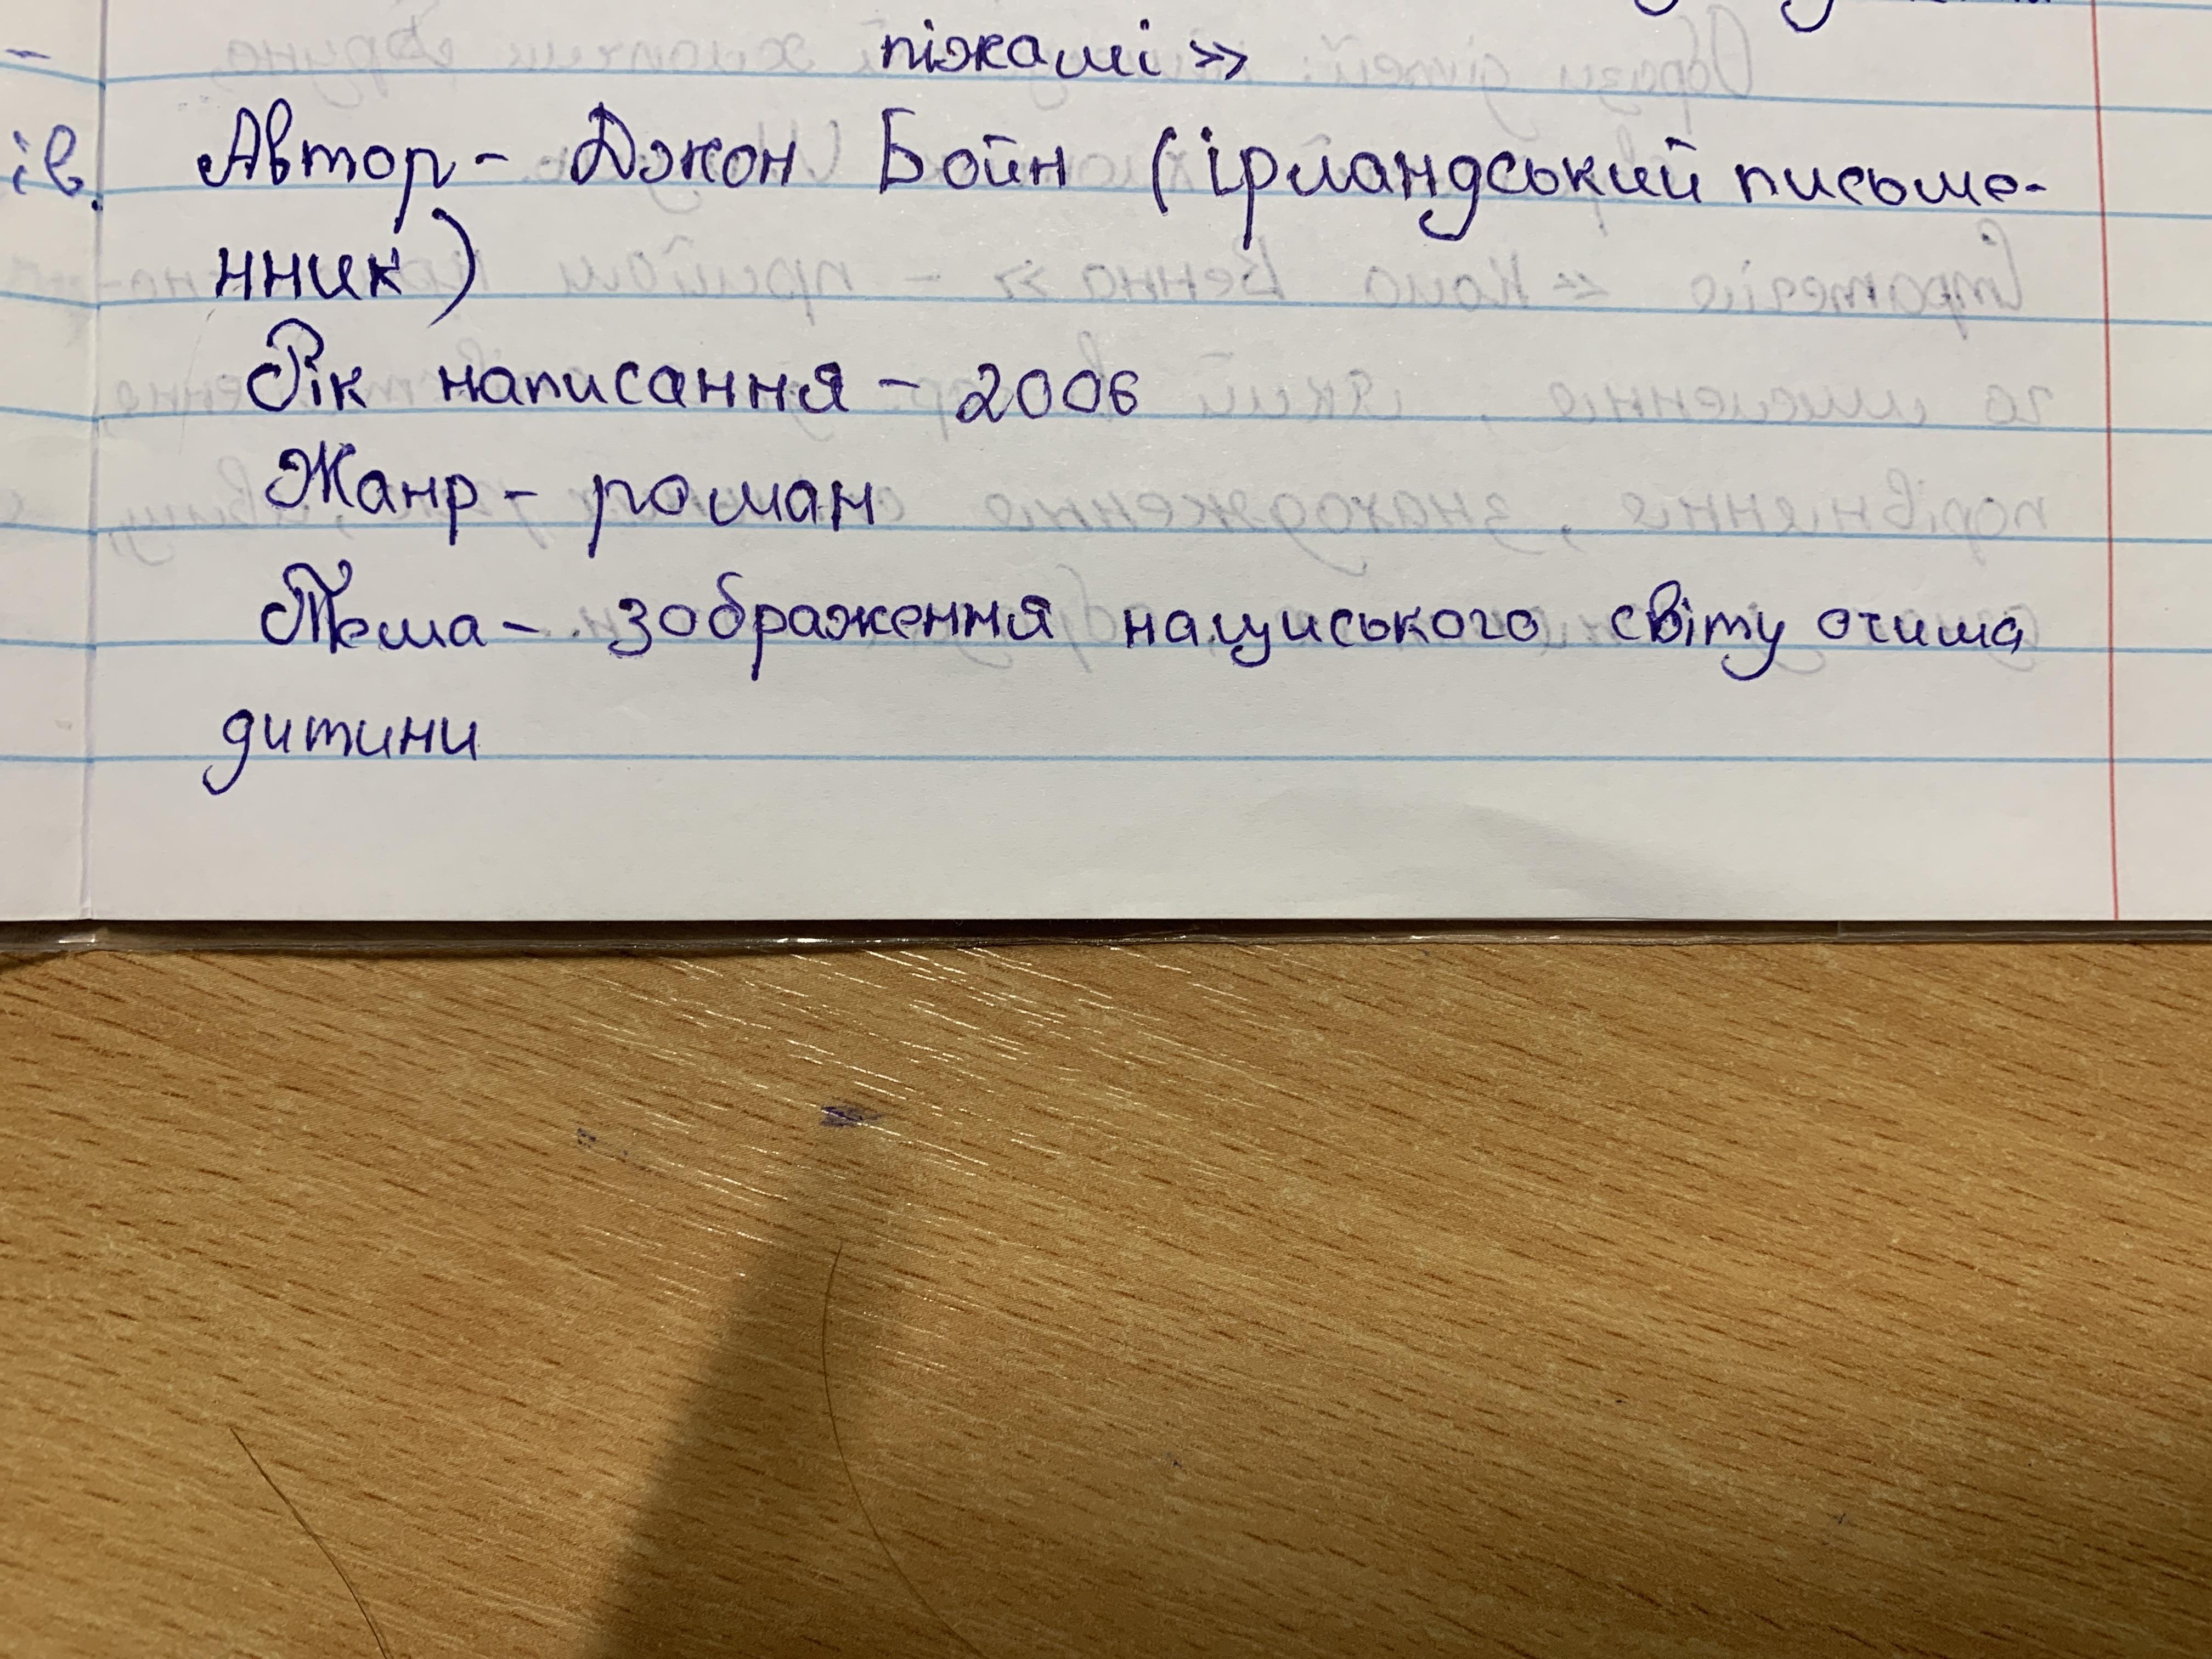 піжамі »
Автор - Джон Бойн (ірландський письме-
ів.
нник)
Рік написання - 2006
Жанр - роман
Тема - зображення нациського світу очима
дитини